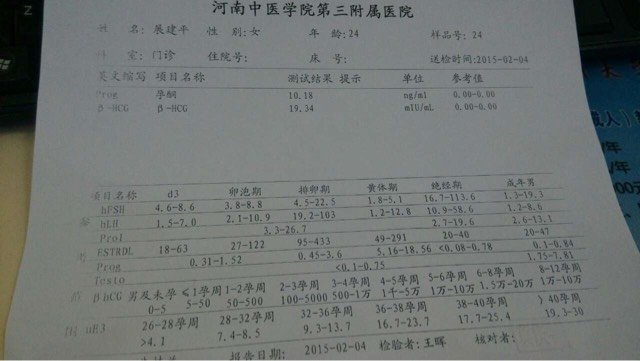 河南中医学院第三附属医院
姓 名:展建平 性 别:女 年 龄:24 样品号:24
科 室:门诊 住院号: 床 号: 送检时间:2015-02-04
英文缩写 项目名称 测试结果 提示 单位 参考值
Prog 孕酮 10.18 ng/ml 0.00-0.00
β-HCG β-HCG 19.34 mIU/mL 0.00-0.00
项目名称 d3 卵泡期 排卵期 黄体期 绝经期 成年男
hFSH 4.6-8.6 3.8-8.8 4.5-22.5 1.8-5.1 16.7-113.6 1.3-19.3
参 hLH 1.5-7.0 2.1-10.9 19.2-103 1.2-12.8 10.9-58.6 1.2-8.6
Prol 3.3-26.7 2.7-19.6 2.6-13.1
考 ESTRDL 18-63 27-122 95-433 49-291 20-40 20-47
Prog 0.31-1.52 0.45-3.6 5.16-18.56 <0.08-0.78 0.1-0.84
Testo <0.1-0.75 1.75-7.81
值 βhCG 男及未孕 ≤1孕周 1-2孕周 2-3孕周 3-4孕周 4-5孕周 5-6孕周 6-8孕周 8-12孕周
0-5 5-50 50-500 100-5000 500-1万 1千-5万 1万-10万 1.5万-20万 1万-10万
围 uE3 26-28孕周 28-32孕周 32-36孕周 36-38孕周 38-40孕周 >40孕周
>4.1 7.4-8.5 9.3-13.7 16.7-23.7 17.7-25.4 19.3-30
报告日期: 2015-02-04 检验者:王晖 核对者: